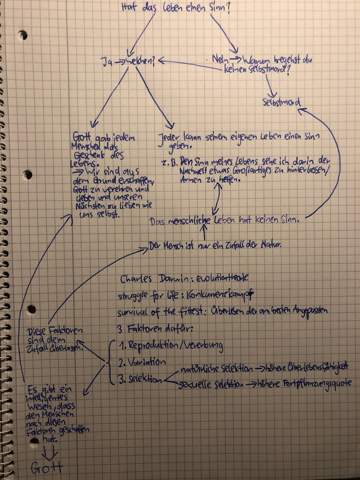 Hat das Leben einen Sinn?
Ja → welchen?
Nein → Warum begehst du
keinen Selbstmord?
Selbstmord
Gott gab jedem
Menschen das
Geschenk des
Lebens.
→ Wir sind aus
dem Grund erschaffen,
Gott zu verehren und
lieben und unseren
Nächsten zu lieben wie
uns selbst.
Jeder kann seinen eigenen Leben einen Sinn
geben.
z.B. Den Sinn meines Lebens sehe ich darin der
Nachwelt etwas Großartiges zu hinterlassen/
Armen zu helfen.
Das menschliche Leben hat keinen Sinn.
Der Mensch ist nur ein Zufall der Natur.
Charles Darwin: Evolutionstheorie
struggle for life: Konkurrenzkampf
survival of the fittest: Überleben der am besten Angepassten
3 Faktoren dafür:
1. Reproduktion/Vererbung
2. Variation
3. Selektion
natürliche Selektion → höhere Überlebensfähigkeit
sexuelle Selektion → höhere Fortpflanzungsquote
Diese Faktoren
sind dem
Zufall überlassen.
Es gibt ein
intelligentes
Wesen, dass
den Menschen
nach diesen
Faktoren geschaffen
hat.
Gott